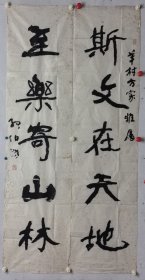 華村方家雅属
斯文在天地
至樂寄山林